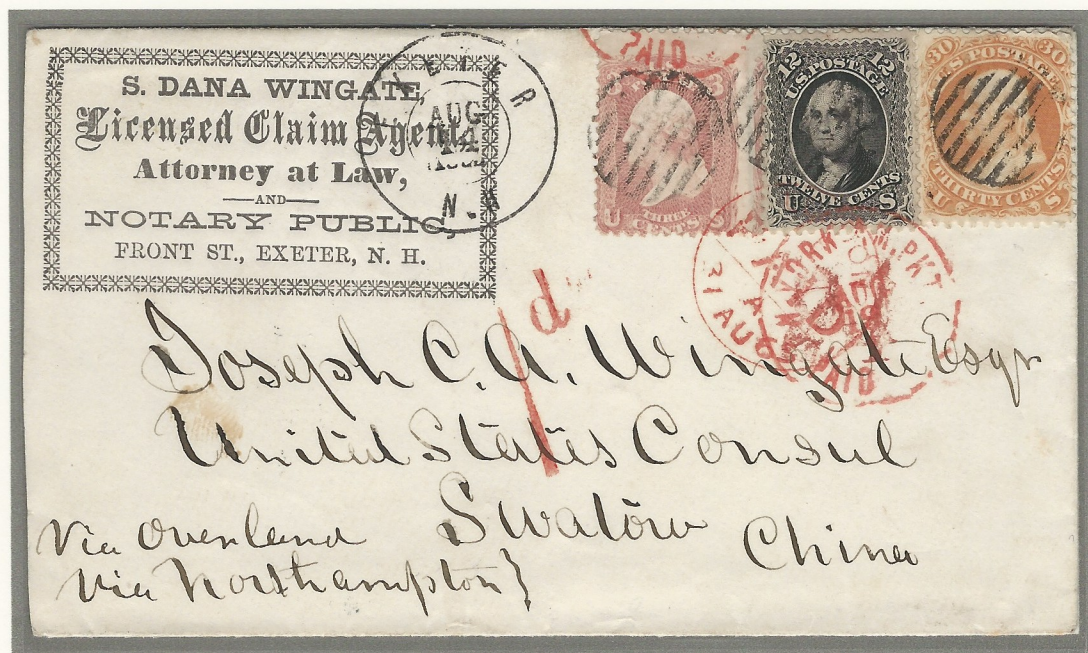 S. DANA WINGATE,
Licensed Claim Agent,
Attorney at Law,
—AND—
NOTARY PUBLIC,
FRONT ST., EXETER, N. H.
EXETER
AUG
14
N.H
PAID
3 3
U THREE S
CENTS
12 12
U.S. POSTAGE
TWELVE CENTS
U S
30 30
U.S. POSTAGE
THIRTY CENTS
U S
YORK AM. PKT
31 AUG
PAID
1d
Joseph C. A. Wingate Esqr
United States Consul
Swatow
China
Via Overland
Via Northampton}